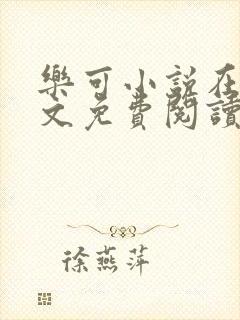 樂可小說在
文免費閱讀
徐燕萍